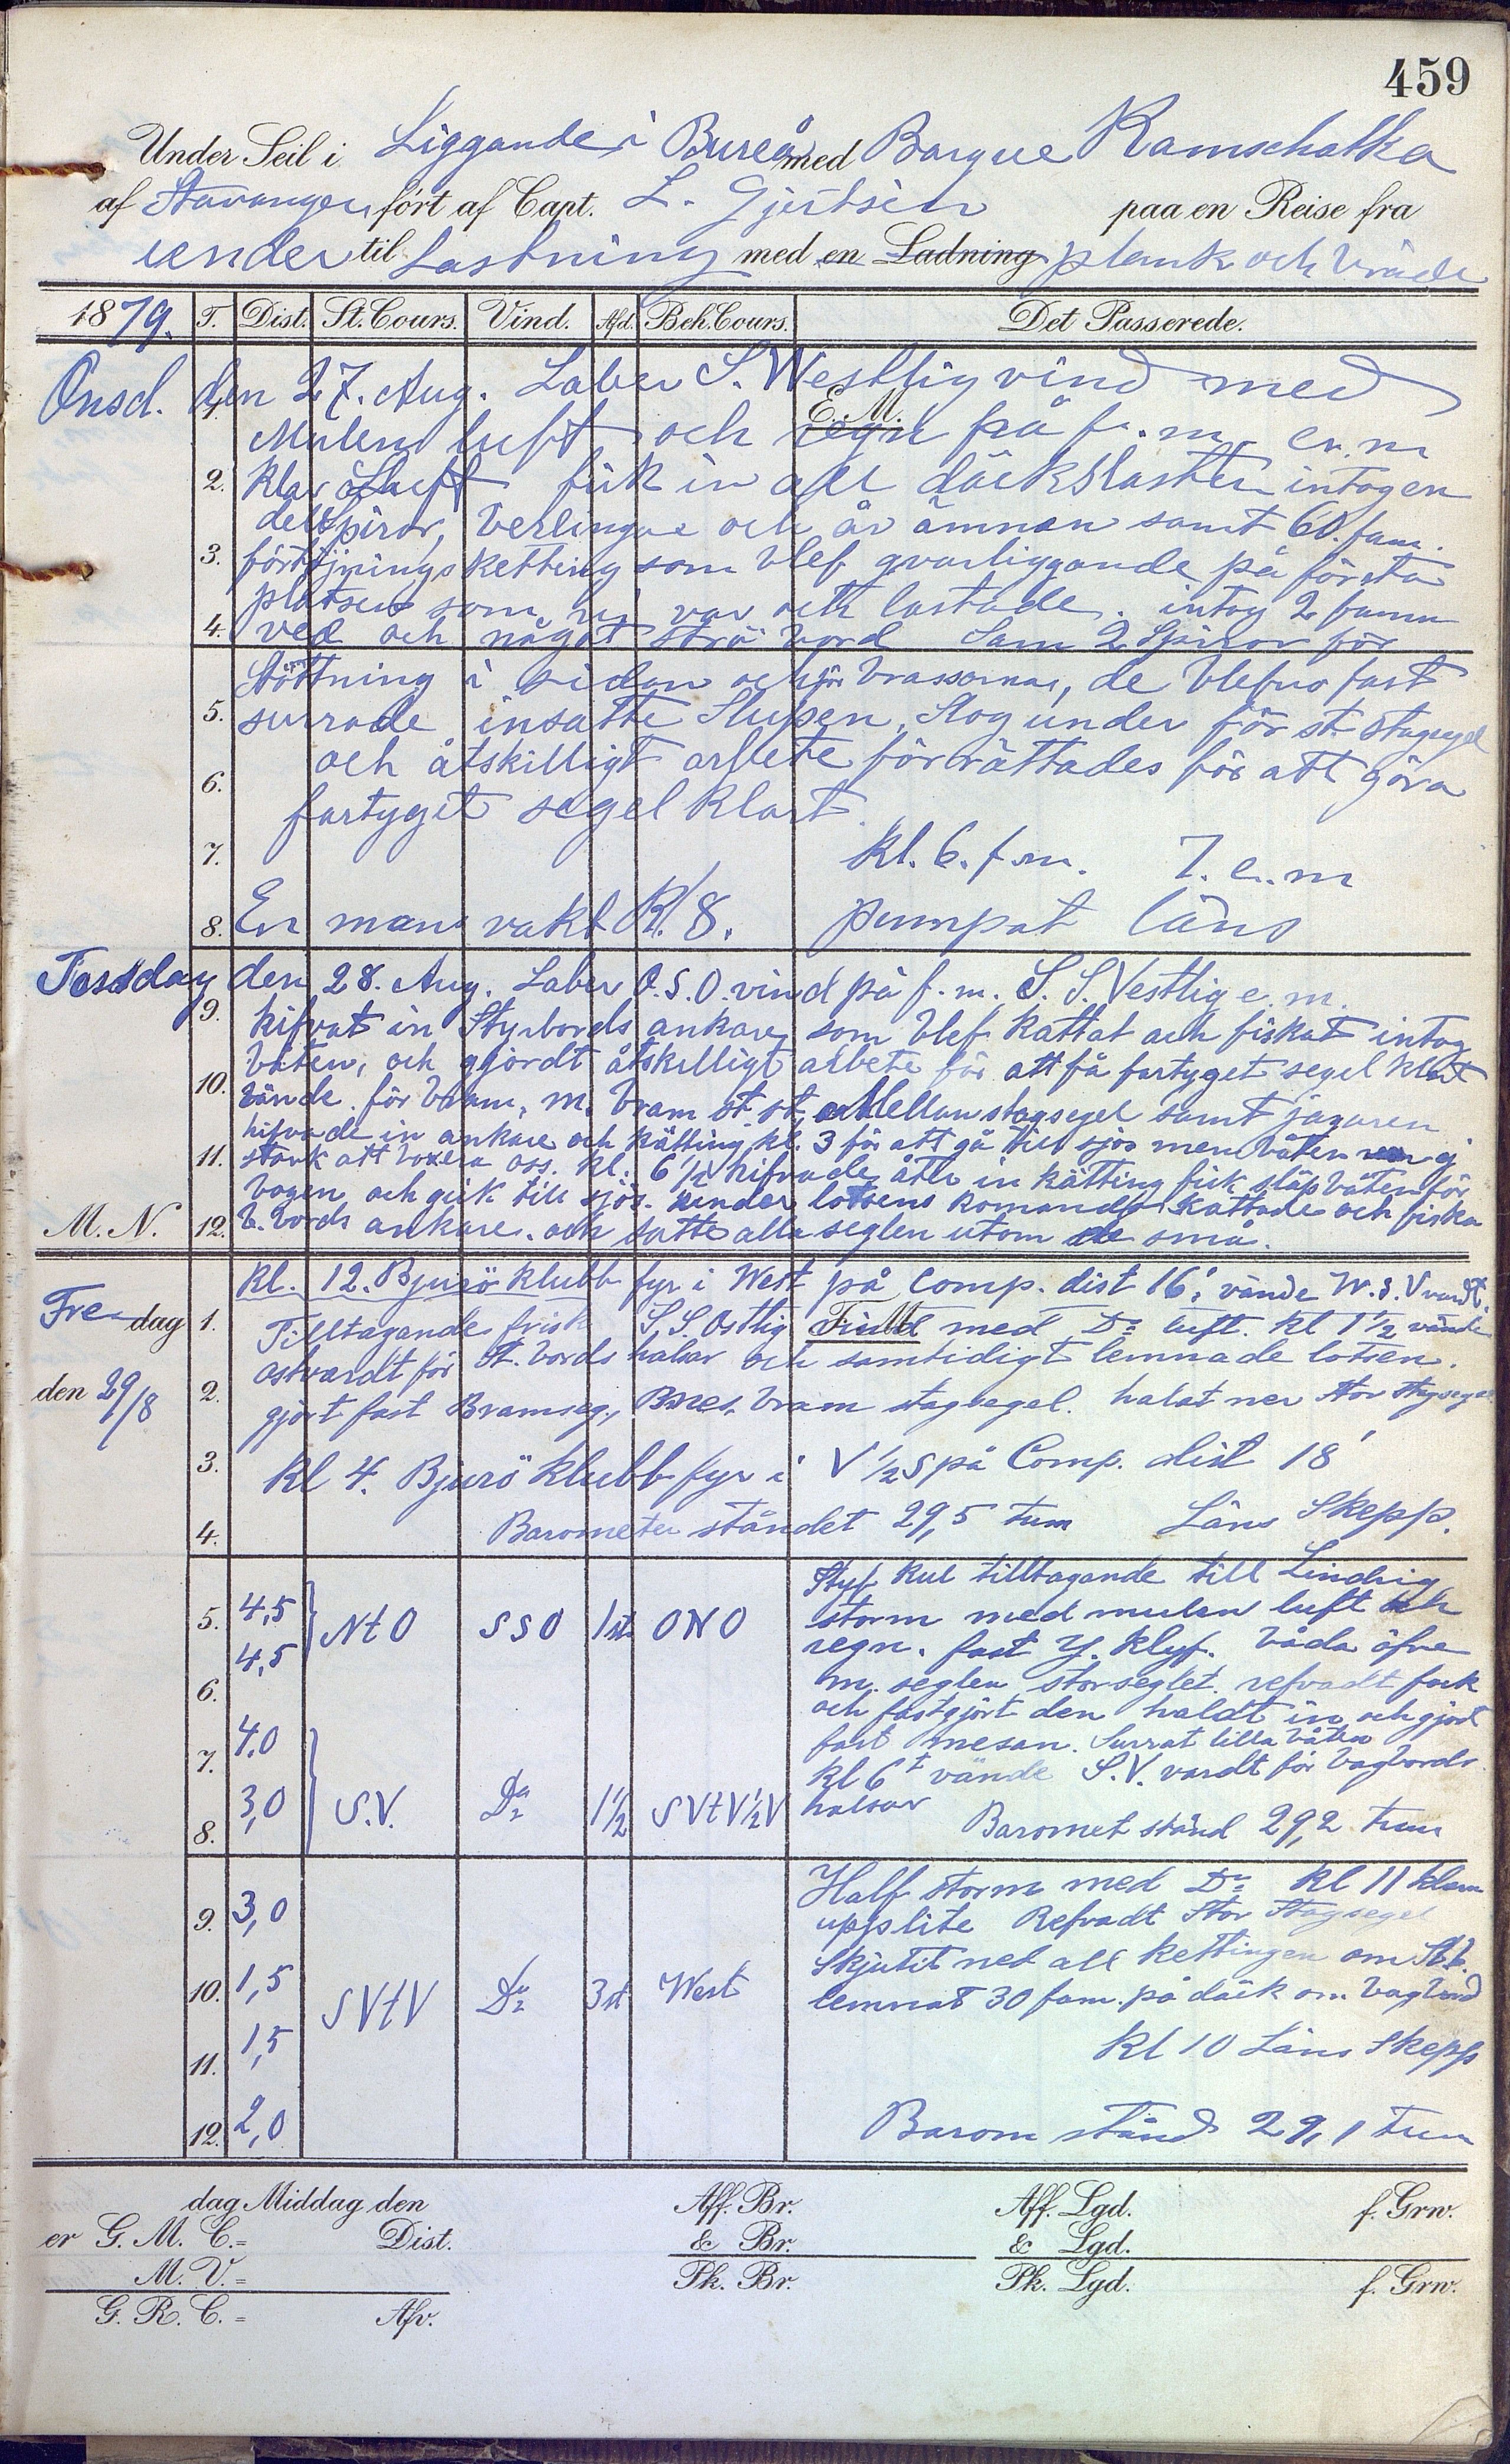 459
Under Seil i Liggande i Bureå med Barque Kamschatka
af Stavanger ført af Capt. L. Gjertsen paa en Reise fra
under til Lastning med en Ladning plank och bräde
1879. T. Dist. St. Cours. Vind. Afd. Beh. Cours. Det Passerede.
Onsd. den 27. Aug. Laber S. Westlig vind med
1. E. M.
Mulen luft och regn på f. m. e. m
2. klar Luft fick in all däckslasten intogen
del Spiror, Verlingar och år ämnen samt 60 fam.
3. förtöjnings ketting som blef qvarliggande på första
platsen som vi var och lastade. intog 2 famn
4. ved och något strö bord Sam 2 Spiror för
Stöttning i sidan och för brassarnas, de blefvo fast
5. surrade insatte Slupen, Slog under för st. stagsegel
och åtskilligt arbete förrättades för att göra
6. fartyget segel klart.
7. Kl. 6. f. m. 7. e. m
8. En mans vakt Kl. 8. pumpat läns
Torsdag den 28. Aug. Laber O.S.O. vind på f. m. S. S. Vestlig e. m.
9. hifvat in Styrbords ankare som blef kattat och fiskat intog
båten, och gjordt åtskilligt arbete för att få fartyget segel klart
10. vände för bram, m. bram st. st, Mellan stagsegel samt jagaren
hifvade in ankare och kätting kl. 3 för att gå till sjös men båten ej
11. stark att boxera oss. kl. 6 1/2 hifvade åter in kätting fick släp båten för
bogen och gick till sjös. under lotsens komando Kattade och fiska
M. N. 12. b. bords ankare. och satte alla seglen utom de små.
Kl. 12. Bjurö klubb fyr i West på Comp. dist 16', vände W. S. V vardt.
Fredag 1. Tilltagande frisk S. S. Ostlig Vind med Do luft. kl 1 1/2 vände
F. M.
ostvardt för St. bords halsar och samtidigt lemnade lotsen.
den 29/8 2. gjort fast Bramseg., bram stagsegel. halat ner Stor Stagsegel
3. Kl 4. Bjurö klubb fyr i V 1/2 S på Comp. dist 18'
4. Barometer ståndet 29,5 tum Läns Skepp.
Styf kul tilltagande till Lindrig
5. 4,5 NtO SSO 1 st. ONO storm med mulen luft och
4,5 regn. fast Y. klyf. båda öfre
6. m. seglen storseglet. refvadt fock
och fastgjort den haldt in och gjort
4,0 fast mesan. Surrat lilla båten
7. kl 6 t vände S. V. vardt för bagbords
3,0 S.V. Do 1 1/2 SVtV 1/2 V halsar
8. Baromet stånd 29,2 tum
Half storm med Do kl 11 klam
9. 3,0 uppslite Refvadt Stor Stagsegel
Skjutit ned all kettingen om Stb.
10. 1,5 SVtV Do 3 st West lemnat 30 fam. på däck om bagbord
11. 1,5 Kl 10 Läns Skepp
12. 2,0 Barom stånd 29,1 tum
dag Middag den Aff. Br. Aff. Lgd. f. Grw.
er G. M. C. = Dist. & Br. & Lgd.
M. V. = Pk. Br. Pk. Lgd. f. Grw.
G. R. C. = Afv.